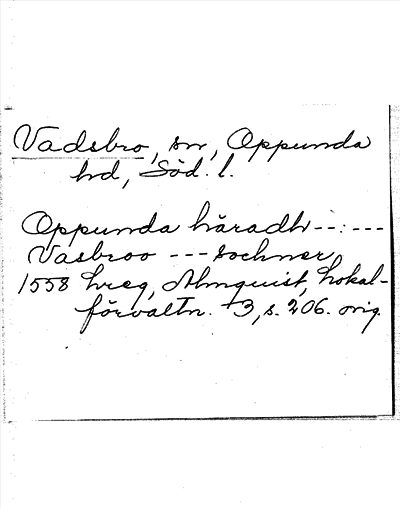 Vadsbro, sn, Oppunda
hd, Söd. l.
Oppunda häradh --:---
Vasbroo --- sochner
1558 hreg, Almquist, Lokal-
förvaltn. 3, s. 206. orig.